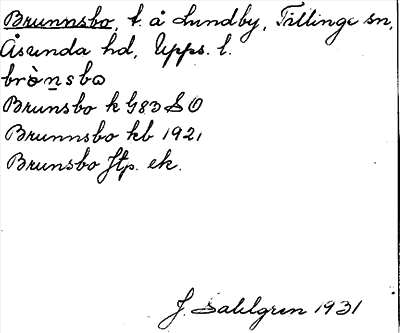 Brunnsbo, t. å Lundby, Tillinge sn,
Åsunda hd, Upps. l.
brò̀n̠sbo
Brunsbo k G83 SO
Brunnsbo kb 1921
Brunsbo Jtp. ek.
J. Sahlgren 1931